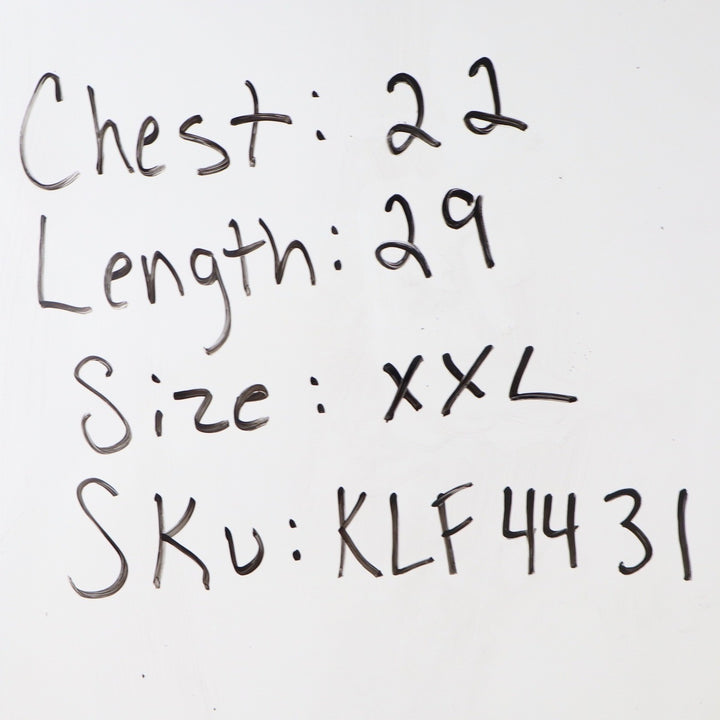 Chest: 22
Length: 29
Size: XXL
SKU: KLF4431